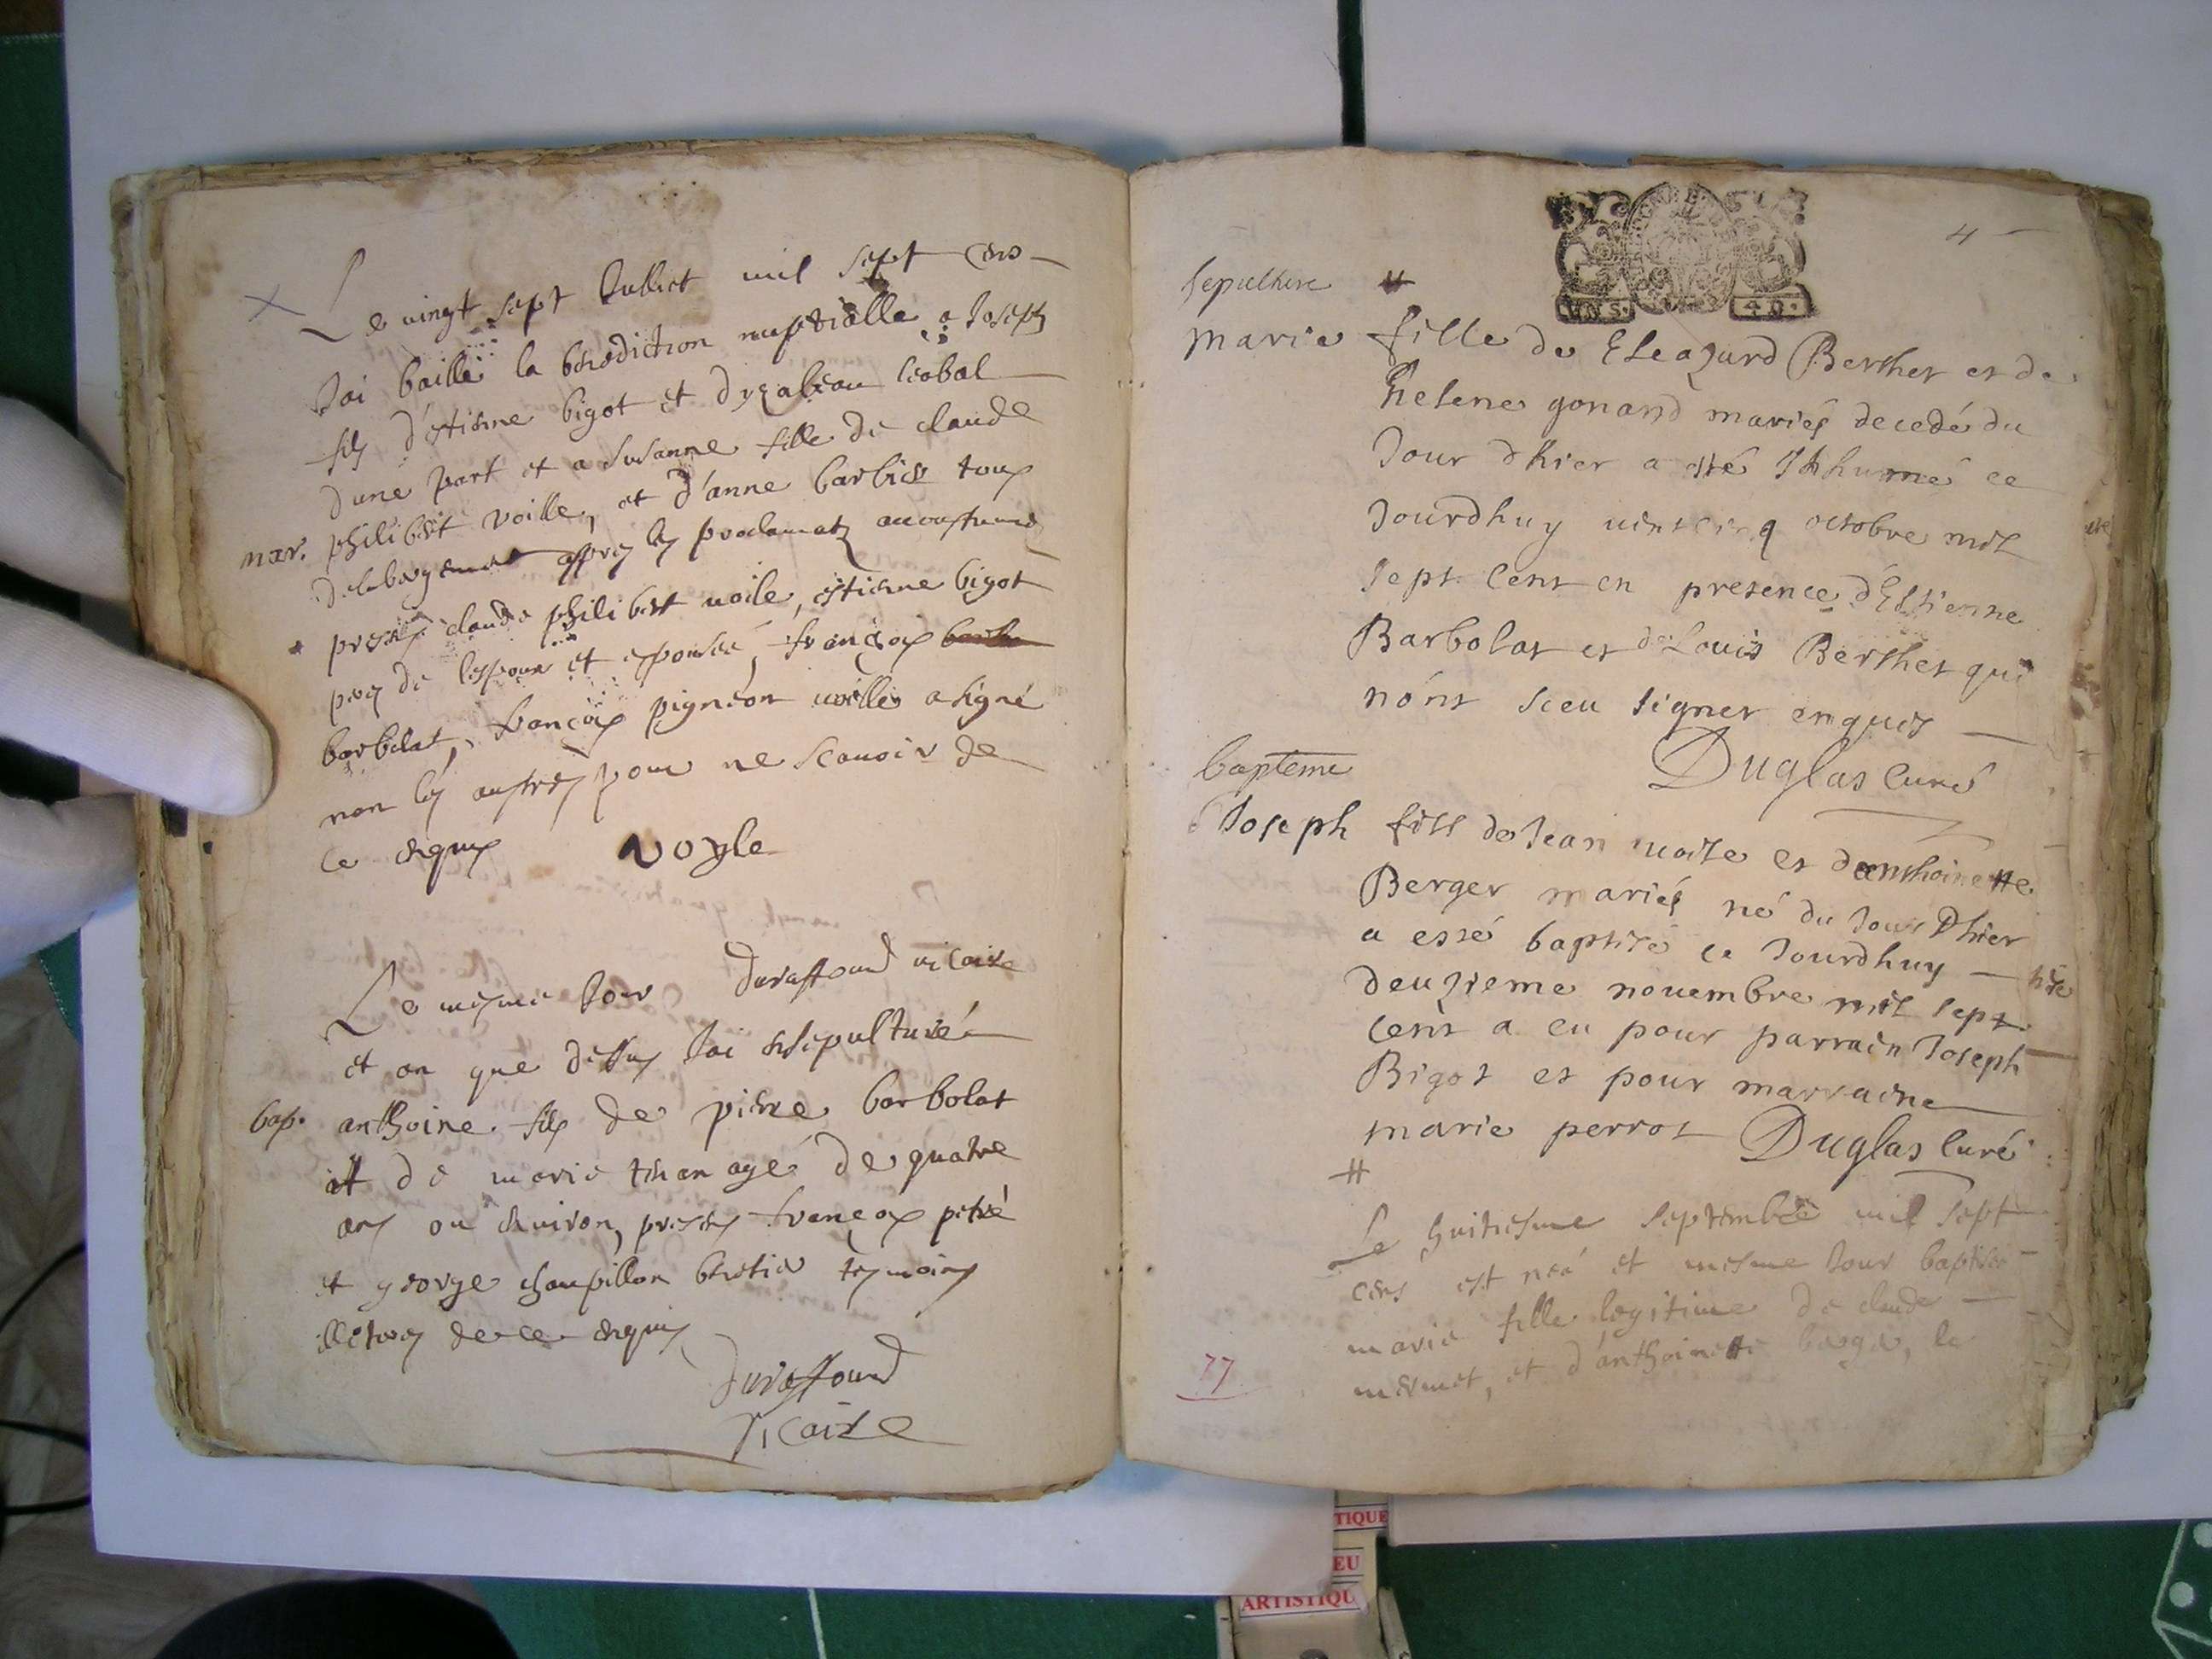 Le vingt sept Jullict mil sept cens
Jai baillé la benediction nuptialle a Joseph
fils d'estienne bigot et dysabeau
dune part et a Susanne fille de claude
mar. philibert voille, et d'anne barbier tous
appres les proclamat accoustumés
presens claude philibert voile, estienne bigot
peres de lespoux et espousée, françois
barbolat, françois pignéon voille a signé
non les austres pour ne scauoir de
ce enquis Voyle
Duraffourd vicaire
Le mesme Jour
et an que dessus Jai ensepulturé
bap. anthoine fils de pierre barbolat
et de marie agé de quatre
ans ou enuiron, presens françois petré
et george chaupillon tesmoins
illetres de ce enquis
Duraffourd
vicaire
4
sepulture #
VNS. 4D.
Marie fille de Eleazard Berthet et de
Helene gonand mariés decedé du
Jour dhier a esté Inhumé ce
Jourdhuy uintcinq octobre mil
sept cent en presence d'Estienne
Barbolat et de Louis Berthet qui
nónt sceu signer enquis
Duglas Curé
bapteme
Joseph fils de Jean uoile et danthoinette
Berger mariés né du Jour Dhier
a essé baptisé ce Jourdhuy
deuzieme nouembre mil sept
cent a eu pour parrain Joseph
Bigot et pour marraine
marie perrot Duglas Curé
#
Le huitiesme septembre mil sept
cens est née et mesme Jour baptisée
marie fille legitime de claude
mermet, et d'anthoinette berger, le
77
TIQUE
EU
ARTISTIQU